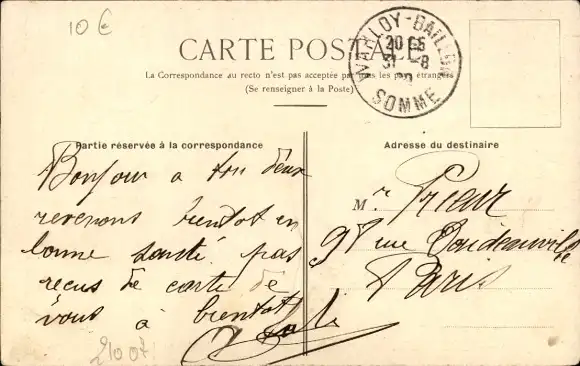 10 €
CARTE POSTALE
La Correspondance au recto n'est pas acceptée par tous les pays étrangers
(Se renseigner à la Poste)
VARLLOY-BAILLON
20 
31 -8
SOMME
Partie réservée à la correspondance
Adresse du destinaire
Bonjour a tou deux
revenons bientot en
bonne santé pas
reçus de carte de
vous à bientot
M r Prieur
98 rue
Paris